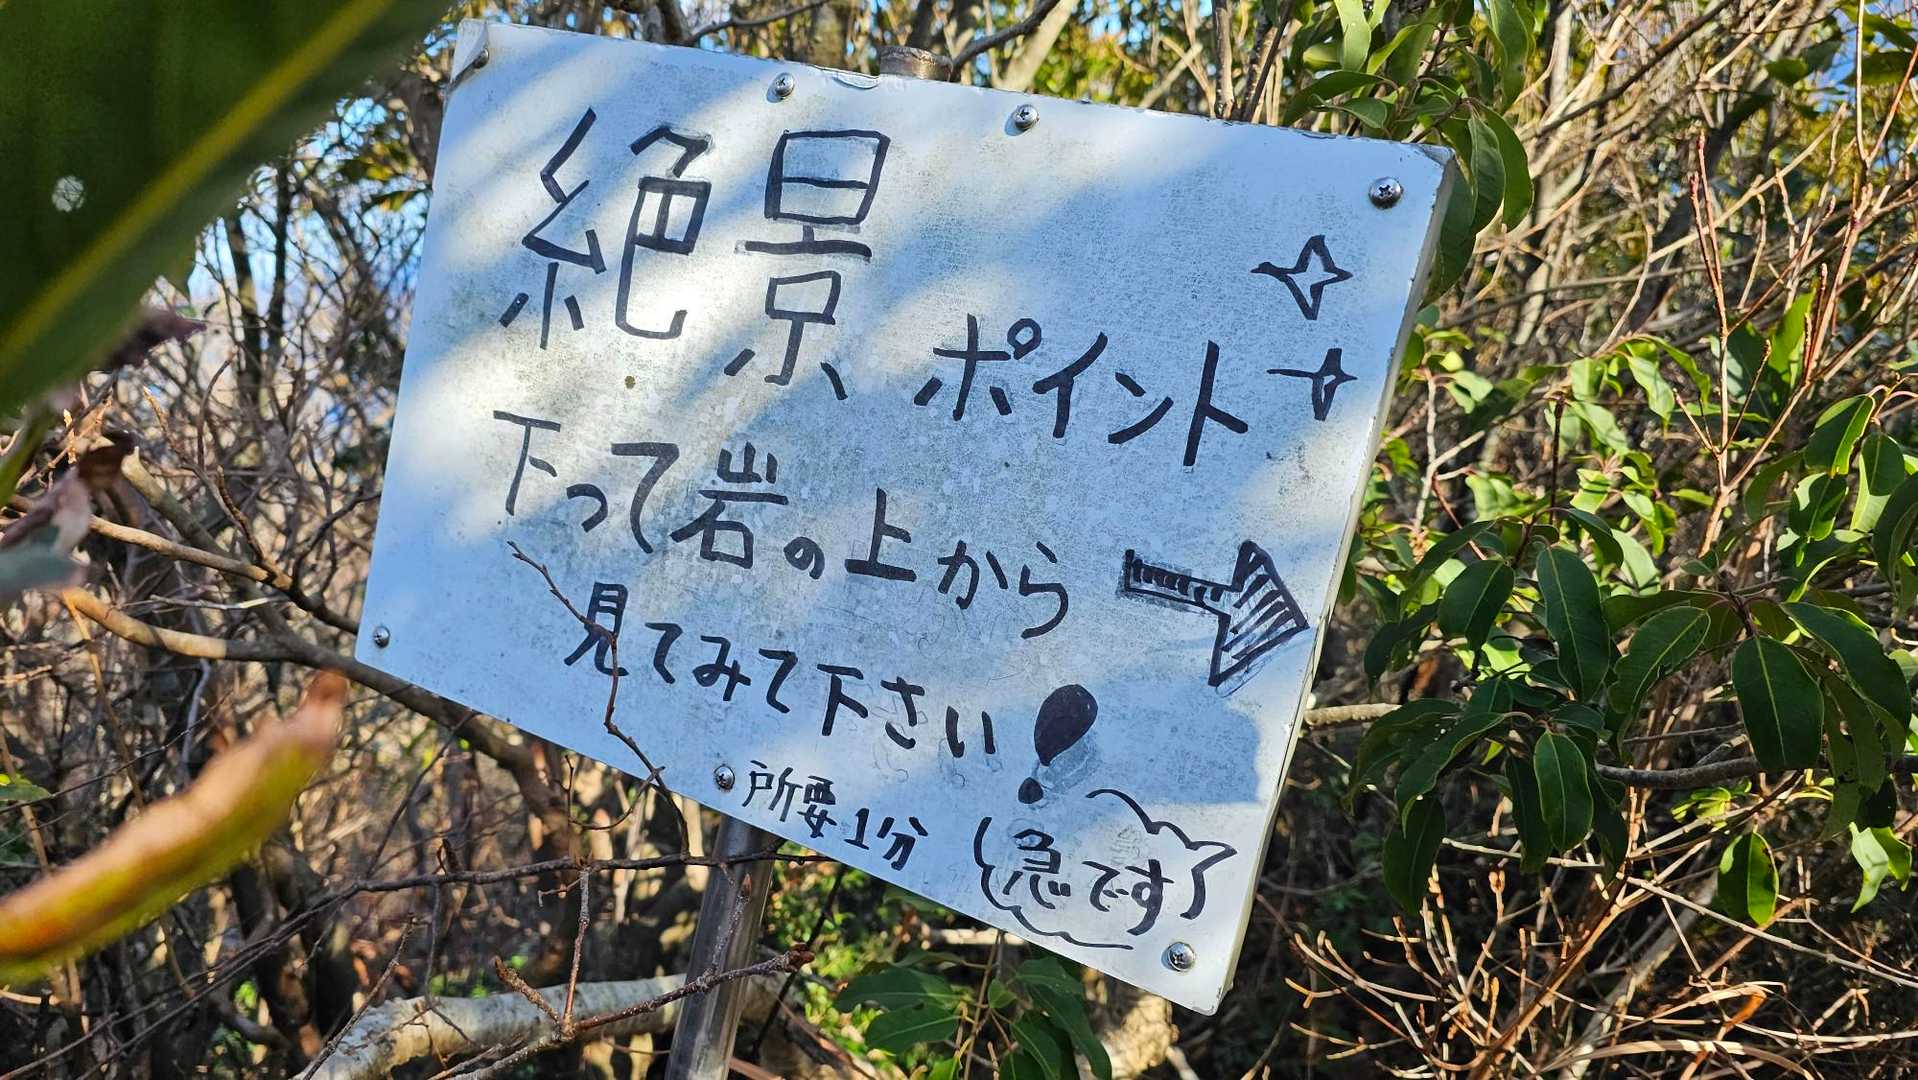 絶景ポイント
下って岩の上から
見てみて下さい!
所要1分
急です